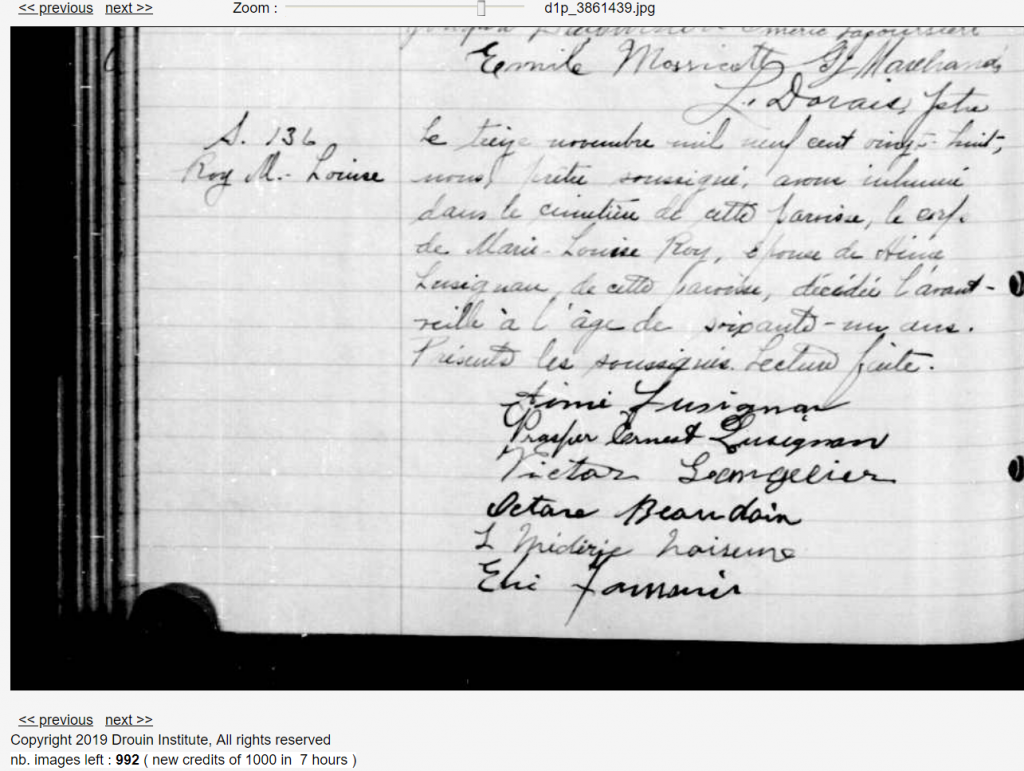 << previous next >> Zoom : d1p_3861439.jpg
Emile G J Marchand
L. Dorais, Ptre
S. 136
Roy M.-Louise
Le treize novembre mil neuf cent vingt-huit,
nous, prêtre soussigné, avons inhumé
dans le cimetière de cette paroisse, le corps
de Marie-Louise Roy, épouse de Aimé
Lusignan, de cette paroisse, décédée l'avant-
veille à l'âge de soixante-un ans.
Présents les soussignés. Lecture faite.
Aimé Lusignan
Prosper Ernest Lusignan
Victor Langelier
Octave Beaudoin
L Médéric
Elie
<< previous next >>
Copyright 2019 Drouin Institute, All rights reserved
nb. images left : 992 ( new credits of 1000 in 7 hours )